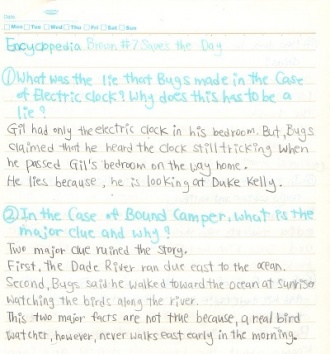 Date
Mon Tue Wed Thu Fri Sat Sun
Encyclopedia Brown #7 Saves the Day
① What was the lie that Bugs made in the Case
of Electric clock? Why does this has to be a
lie?
Gil had only the electric clock in his bedroom. But, Bugs
claimed that he heard the clock still tricking when
he passed Gil's bedroom on the way home.
He lies because, he is looking at Duke Kelly.
② In the Case of Bound Camper, what is the
major clue and why?
Two major clue ruined the story.
First, the Dade River ran due east to the ocean.
Second, Bugs said he walked toward the ocean at sunrise
watching the birds along the river.
This two major facts are not true because, a real bird
watcher, however, never walks east early in the morning.